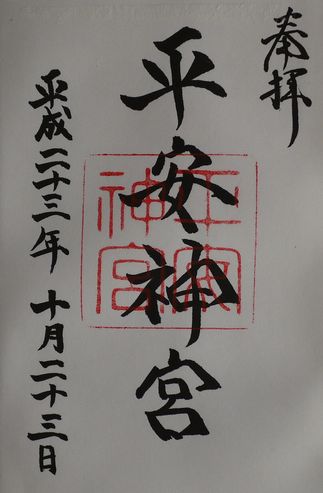 奉拝
平安神宮
平安神宮
平成二十三年 十月二十三日